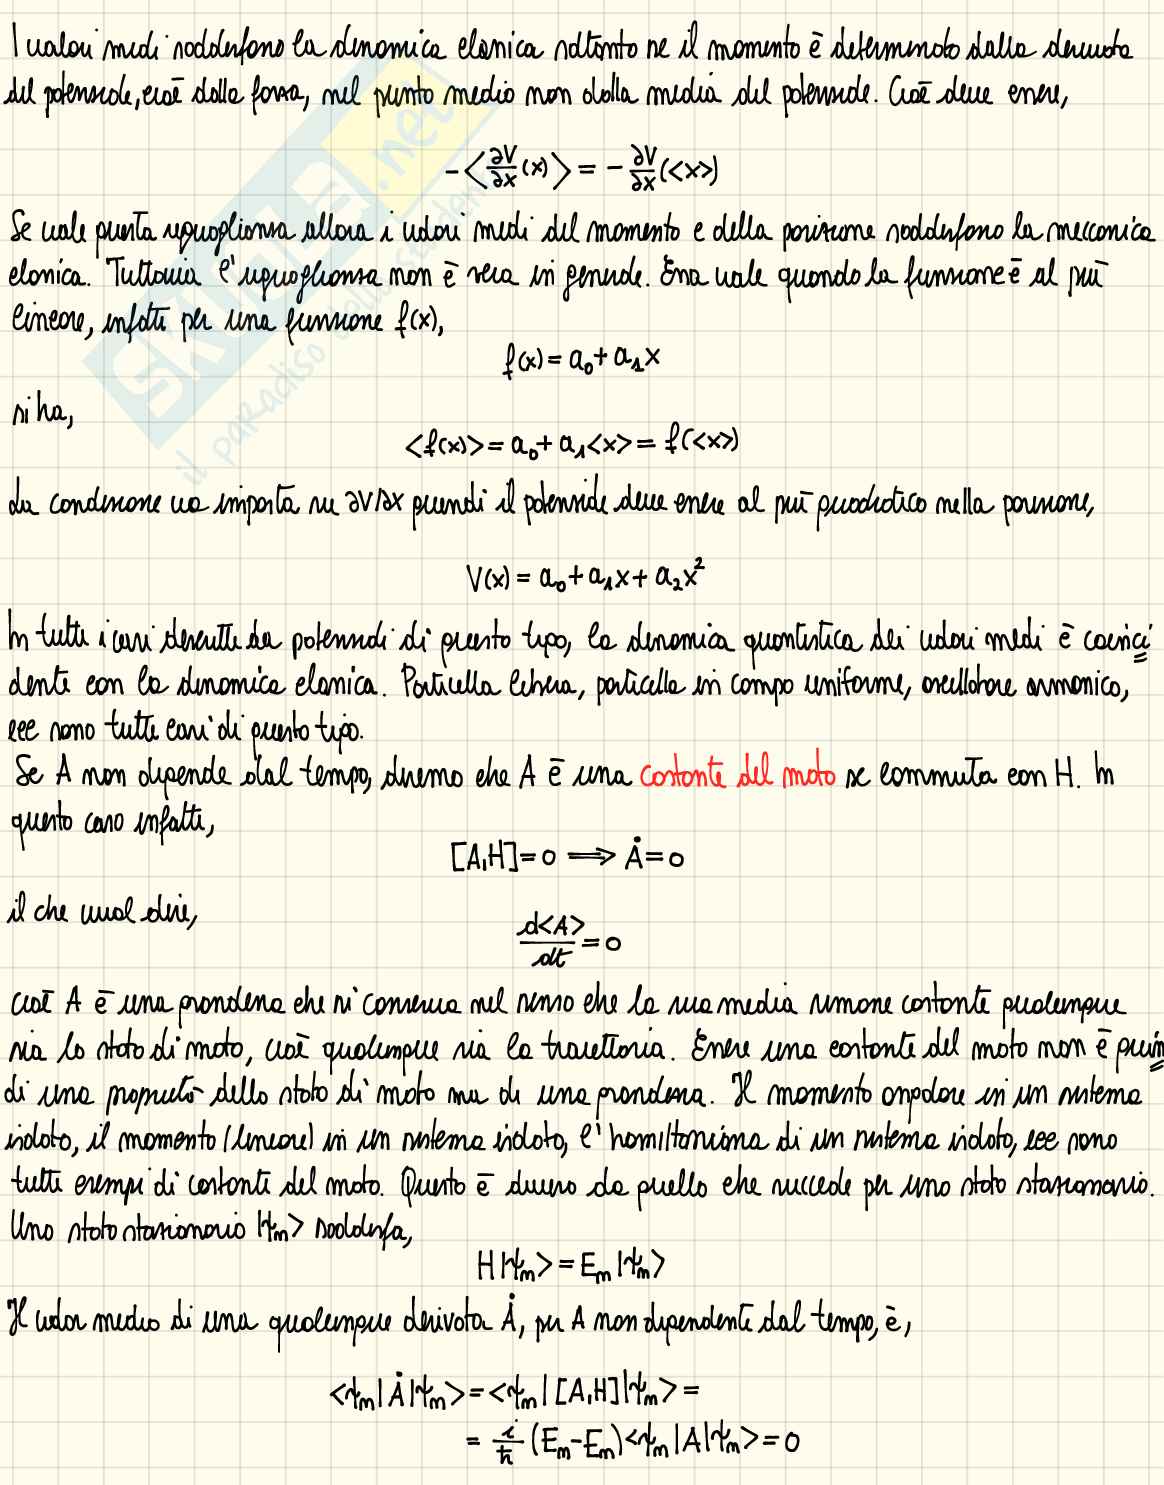 I valori medi soddisfano la dinamica classica soltanto se il momento è determinato dalla derivata
del potenziale, cioè dalla forza, nel punto medio non dalla media del potenziale. Cioè deve essere,
-<∂V/∂x (x)> = -∂V/∂x (<x>)
Se vale questa uguaglianza allora i valori medi del momento e della posizione soddisfano la meccanica
classica. Tuttavia l'uguaglianza non è vera in generale. Essa vale quando la funzione è al più
lineare, infatti per una funzione f(x),
f(x) = a₀ + a₁x
si ha,
<f(x)> = a₀ + a₁<x> = f(<x>)
La condizione va imposta su ∂V/∂x quindi il potenziale deve essere al più quadratico nella posizione,
V(x) = a₀ + a₁x + a₂x²
In tutti i casi descritti da potenziali di questo tipo, la dinamica quantistica dei valori medi è coinci
dente con la dinamica classica. Particella libera, particella in campo uniforme, oscillatore armonico,
ecc sono tutti casi di questo tipo.
Se A non dipende dal tempo, diremo che A è una costante del moto se commuta con H. In
questo caso infatti,
[A,H] = 0 ⟹ Ȧ = 0
il che vuol dire,
d<A>/dt = 0
cioè A è una grandezza che si conserva nel senso che la sua media rimane costante qualunque
sia lo stato di moto, cioè qualunque sia la traiettoria. Essere una costante del moto non è quin
di una proprietà dello stato di moto ma di una grandezza. Il momento angolare in un sistema
isolato, il momento (lineare) in un sistema isolato, l'hamiltoniana di un sistema isolato, ecc sono
tutti esempi di costanti del moto. Questo è diverso da quello che succede per uno stato stazionario.
Uno stato stazionario |ψₘ> soddisfa,
H|ψₘ> = Eₘ|ψₘ>
Il valor medio di una qualunque derivata Ȧ, per A non dipendente dal tempo, è,
<ψₘ|Ȧ|ψₘ> = <ψₘ|[A,H]|ψₘ> =
= i/ħ (Eₘ-Eₘ)<ψₘ|A|ψₘ> = 0
skuola.net
il paradiso dello studente